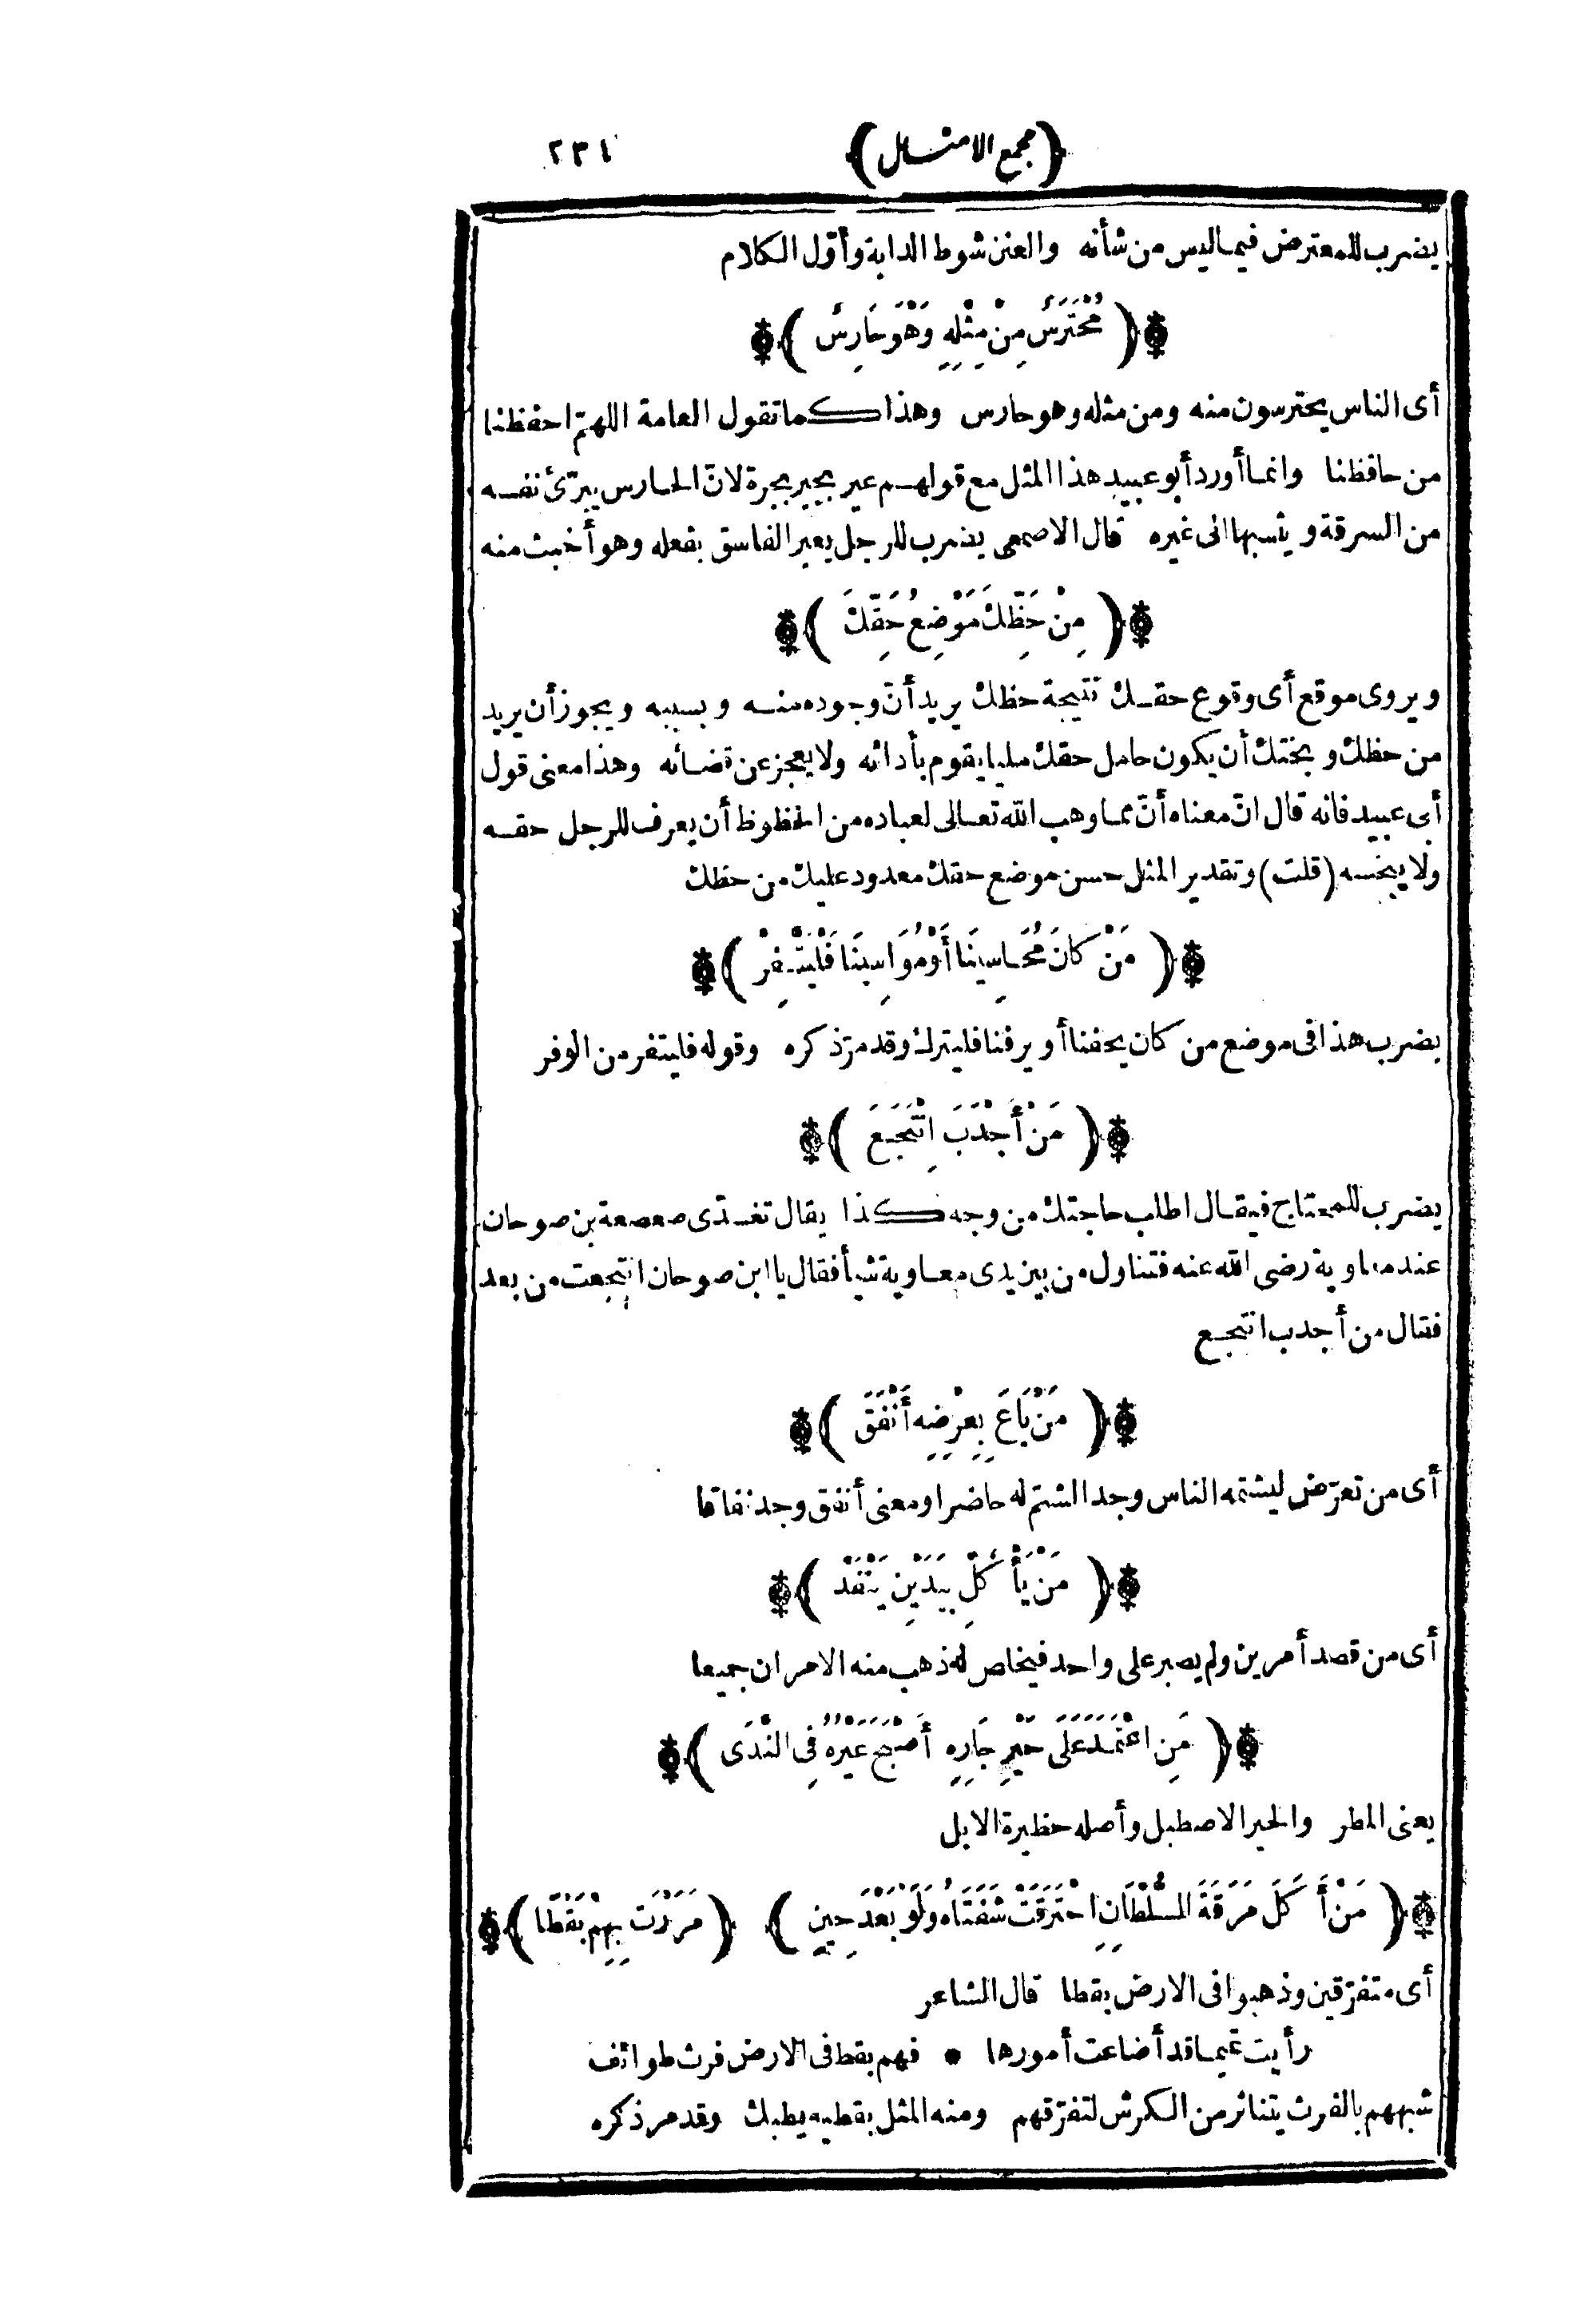 (مجمع الامثال) ٢٣١
يضرب للمعترض فيما ليس من شأنه والعنن شوط الدابة وأوّل الكلام
( مُحْتَرَسٌ مِنْ مِثْلِهِ وَهْوَ حَارِسٌ )
أى الناس يحترسون منه ومن مثله وهو حارس وهذا كما تقول العامة اللهمّ احفظنا
من حافظنا وانما أورد أبو عبيد هذا المثل مع قولهم عير بجير بجرة لانّ الحارس يبرّئ نفسه
من السرقة وينسبها الى غيره قال الاصمعى يضرب للرجل يعير الفاسق بفعله وهو أخبث منه
( مِنْ حَظِّكَ مَوْضِعُ حَقِّكَ )
ويروى موقع أى وقوع حقك نتيجة حظك يريد أنّ وجوده منه وبسببه ويجوز أن يريد
من حظك وبختك أن يكون حامل حقك مليا يقوم بأدائه ولا يعجز عن قضائه وهذا معنى قول
أبى عبيد فانه قال انّ معناه أنّ مما وهب الله تعالى لعباده من الحظوظ أن يعرف للرجل حقه
ولا يبخسه (قلت) وتقدير المثل حسن موضع حقك معدود عليك من حظك
( مَنْ كَانَ مُحَاسِينَا أَوْ مُوَاسِينَا فَلْيَتَّفِرْ )
يضرب هذا فى موضع من كان يحفنا أو يرفنا فليترك وقد مرّ ذكره وقوله فليتفر من الوفر
( مَنْ أَجْدَبَ انْتَجَعَ )
يضرب للمحتاج فيقال اطلب حاجتك من وجه كذا يقال تغدّى صعصعة بن صوحان
عند معاوية رضى الله عنه فتناول من بين يدى معاوية شيأ فقال يا ابن صوحان انتجعت من بعد
فقال من أجدب انتجع
( مَنْ بَاعَ بِعِرْضِهِ أَنْفَقَ )
أى من تعرّض ليشتمه الناس وجد الشتم له حاضرا ومعنى أنفق وجد نفاقا
( مَنْ يَأْكُلْ بِيَدَيْنِ يَنْفَدْ )
أى من قصد أمرين ولم يصبر على واحد فيخلص له ذهب منه الامران جميعا
( مَنِ اعْتَمَدَ عَلَى حَيْرِ جَارِهِ أَصْبَحَ عَيْرُهُ فِى النَّدَى )
يعنى المطر والحير الاصطبل وأصله حظيرة الابل
( مَنْ أَكَلَ مَرَقَةَ السُّلْطَانِ احْتَرَقَتْ شَفَتَاهُ وَلَوْ بَعْدَ حِينٍ ) ( مَرَرْتُ بِهِمْ بَقْطًا )
أى متفرّقين وذهبوا فى الارض بقطا قال الشاعر
رأيت تميما قد أضاعت أمورها * فهم بقط فى الارض فرث طوائف
شبههم بالفرث يتناثر من الكرش لتفرّقهم ومنه المثل بقطيه بطبك وقد مر ذكره